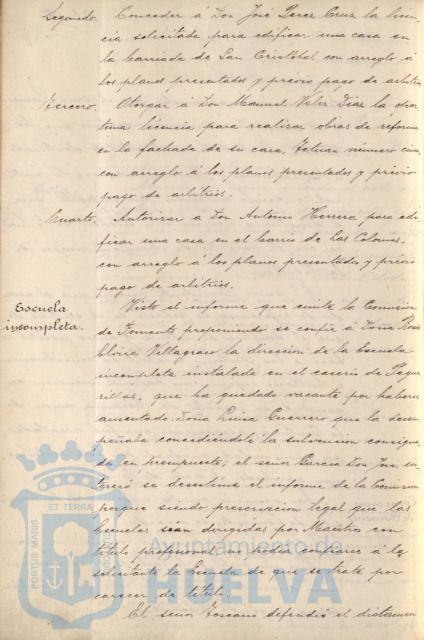 Segundo. Conceder á Don José Perez Cruz la licen-
cia solicitada para edificar una casa en
la barriada de San Cristóbal con arreglo á
los planos presentados y prévio pago de arbitrios
Tercero. Otorgar á Don Manuel Velez Diaz la opor-
tuna licencia para realizar obras de reforma
en la fachada de su casa, Tetuan número
con arreglo á los planos presentados y prévio
pago de arbitrios.
Cuarto. Autorizar a Don Antonio Herrera para edi-
ficar una casa en el barrio de Las Colonias,
con arreglo á los planos presentados y prévio
pago de arbitrios.
Escuela
incompleta.
Visto el informe que emite la Comision
de Fomento proponiendo se confie á Doña Rosa
Elvira Villagraso la direccion de la Escuela
incompleta instalada en el caserio de
que ha quedado vacante por haberse
ausentado Doña Luisa Guerrero que la desem-
peñaba concediéndole la subvencion consigna-
da en presupuesto; el señor Garcia Don José in-
teresó se desestime el informe de la Comision
porque siendo prescripcion legal que las
Escuelas sean dirigidas por Maestros con
título profesional no podia confiarse á la
solicitante la Escuela de que se trata por
carecer de título.
El señor Toscano defendió el dictamen
PORTUS MARIS ET TERRÆ CUSTODIA
Ayuntamiento de
HUELVA